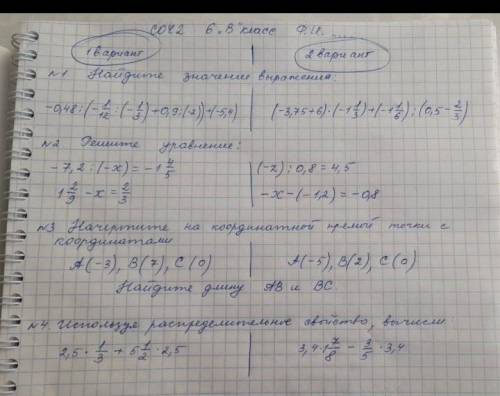 СОЧ2 6 "В" класс Ф.И.
1 вариант 2 вариант
№1 Найдите значение выражения:
-0,48:(-1/12:(-1/3)+0,9:( )+(-5,4) (-3,75+6)·(-1 1/3)+(-1 1/6):(0,5-2/3)
№2 Решите уравнение:
-7,2:(-x)=-1 4/5 (-z):0,8=4,5
1 2/9-x=2/3 -x-(-1,2)=-0,8
№3 Начертите на координатной прямой точки с
координатами
A(-3), B(7), C(0) A(-5), B(2), C(0)
Найдите длину AB и BC.
№4. Используя распределительное свойство, вычисли
2,5·1/3+5 1/2·2,5 3,4·1 7/8-3/5·3,4